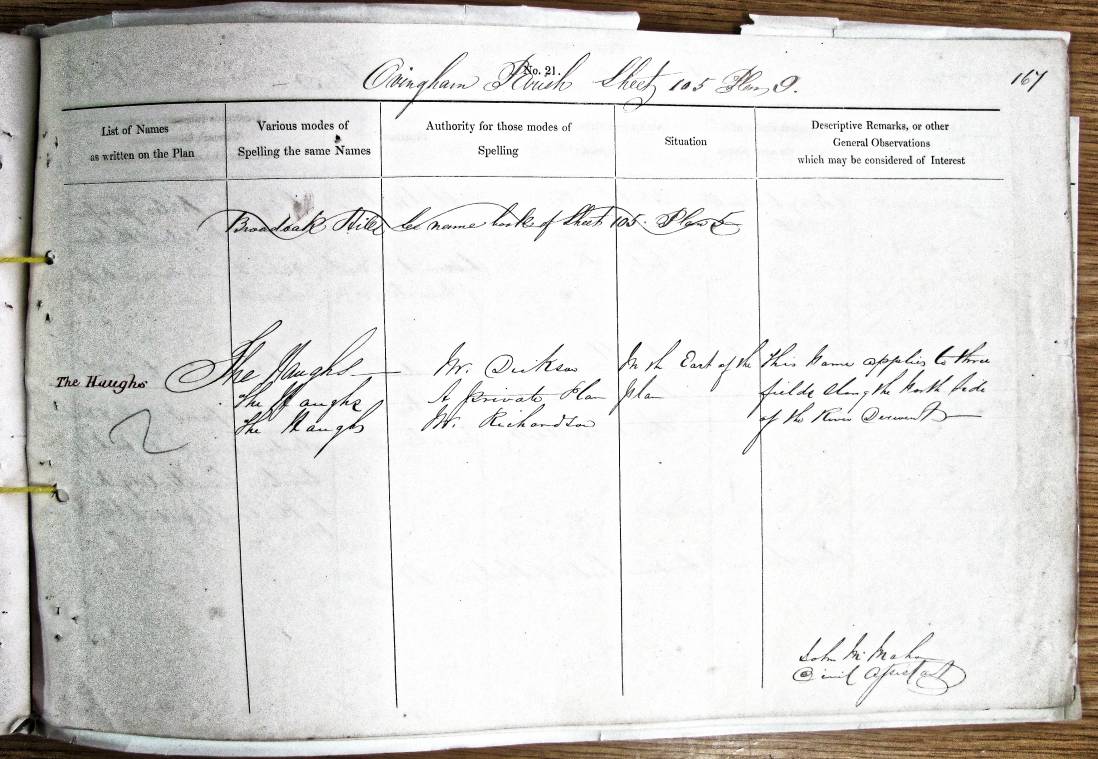 No. 21.
Ovingham Parish Sheet 105 Plan 9.
167
List of Names
as written on the Plan
Various modes of
Spelling the same Names
Authority for those modes of
Spelling
Situation
Descriptive Remarks, or other
General Observations
which may be considered of Interest
Broadoak name book of Sheet 105. Plan 5
The Haughs
The Haughs
The Haughs
The Haughs
Mr. Dickson
A private Plan
Mr. Richardson
In th East of the
plan
This Name applies to three
fields along the North side
of the River Derwent
2
John McMahon
Civil Assistant